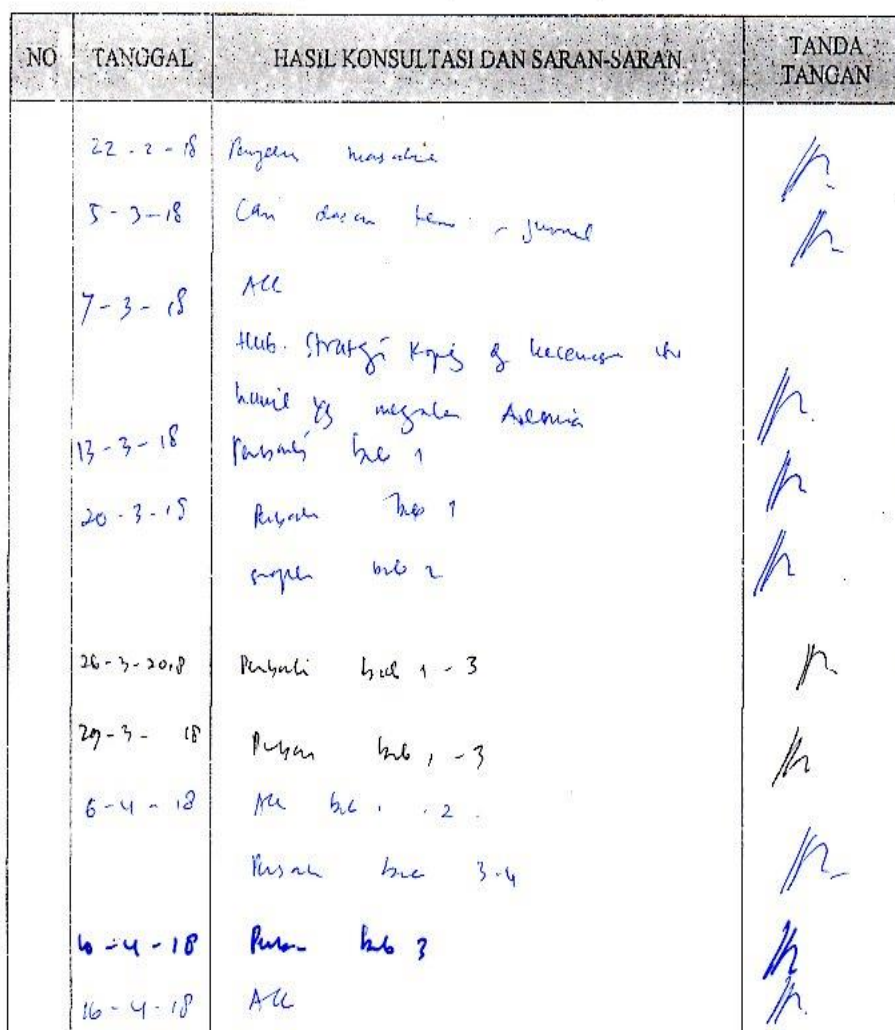 NO TANGGAL HASIL KONSULTASI DAN SARAN-SARAN TANDA TANGAN
22-2-18 masalah
5-3-18 Cari dasar jurnal
7-3-18 ACC
Hub. Strategi Koping dg kecemasan ibu
hamil yg mengalami Anemia
13-3-18 Perbaiki bab 1
20-3-18 Perbaiki bab 1
bab 2
26-3-2018 Perbaiki bab 1-3
29-3-18 bab 1-3
6-4-18 ACC bab 1-2
bab 3-4
10-4-18 bab 3
16-4-18 ACC